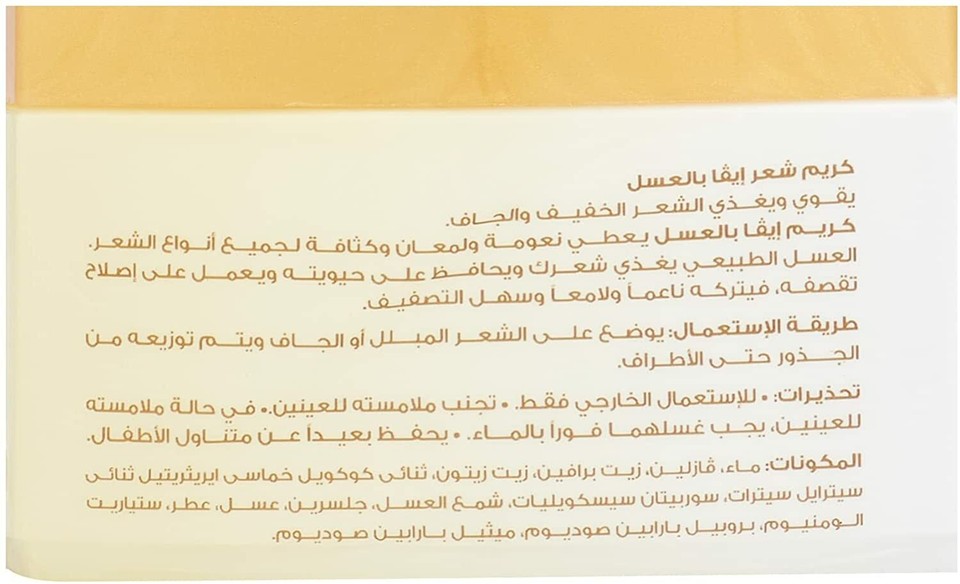 كريم شعر إيڤا بالعسل
يقوي ويغذي الشعر الخفيف والجاف.
كريم إيڤا بالعسل يعطي نعومة ولمعان وكثافة لجميع أنواع الشعر.
العسل الطبيعي يغذي شعرك ويحافظ على حيويته ويعمل على إصلاح
تقصفه، فيتركه ناعماً ولامعاً وسهل التصفيف.
طريقة الإستعمال: يوضع على الشعر المبلل أو الجاف ويتم توزيعه من
الجذور حتى الأطراف.
تحذيرات: • للإستعمال الخارجي فقط. • تجنب ملامسته للعينين.• في حالة ملامسته
للعينين، يجب غسلهما فوراً بالماء. • يحفظ بعيداً عن متناول الأطفال.
المكونات: ماء، ڤازلين، زيت برافين، زيت زيتون، ثنائى كوكويل خماسى ايريثريتيل ثنائى
سيترايل سيترات، سوربيتان سيسكويليات، شمع العسل، جلسرين، عسل، عطر، ستياريت
الومنيوم، بروبيل بارابين صوديوم، ميثيل بارابين صوديوم.